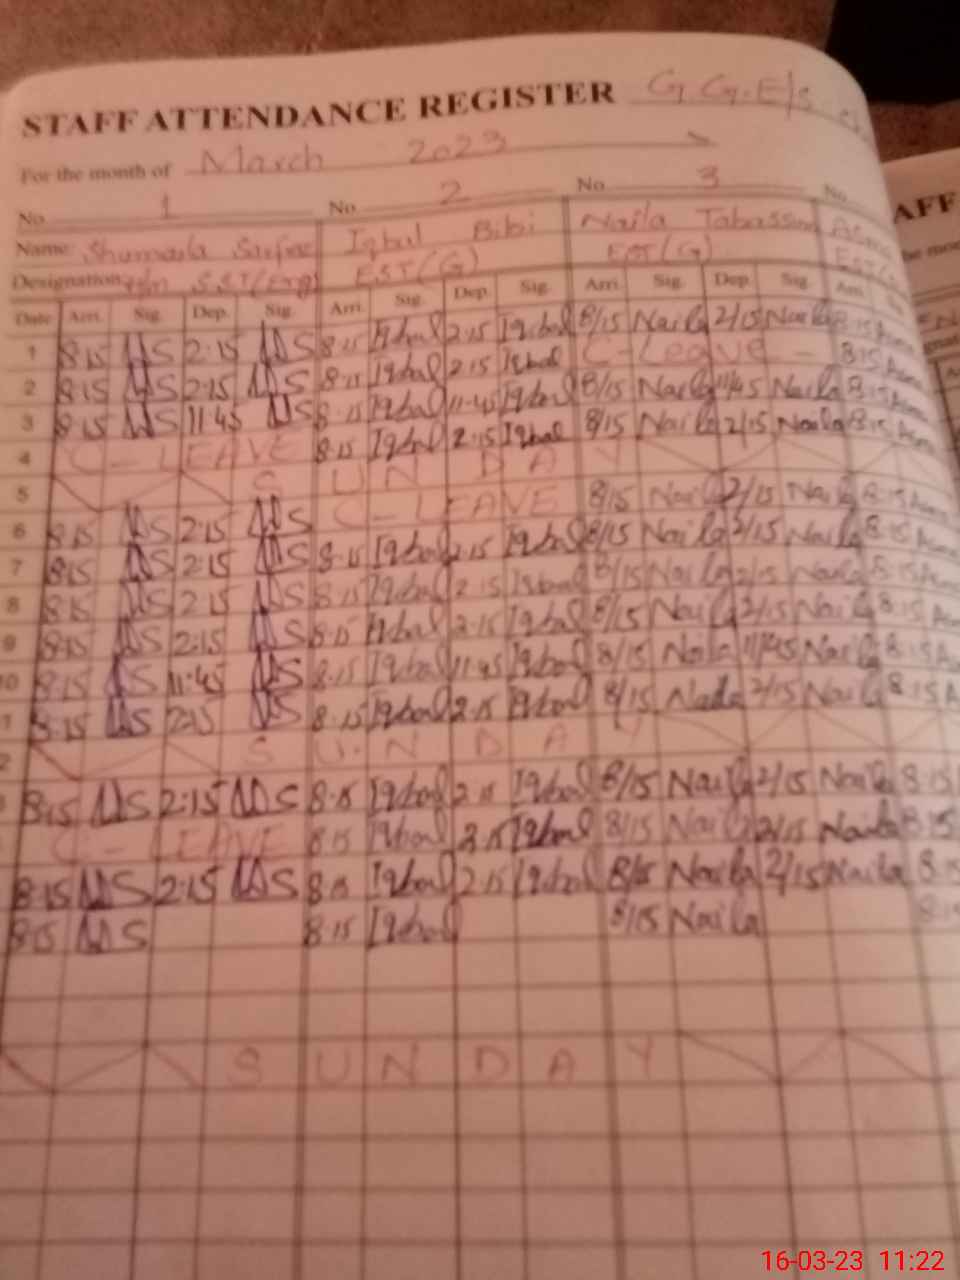 STAFF ATTENDANCE REGISTER G.G.E/S
For the month of March 2023
No 1 No. 2 No 3 No.
Name: Shumaila Sarfraz Iqbal Bibi Naila Tabassum
Designation S.S.T(Eng) EST(G) EST(G)
Date Arri. Sig. Dep. Sig. Arri. Sig. Dep. Sig. Arri. Sig. Dep. Sig. Arri.
1 8:15 2:15 8:15 Iqbal 2:15 Iqbal 8/15 Naila 2/15 Naila 8:15 Asma
2 8:15 2:15 8:15 Iqbal 2:15 Iqbal C-Leave - 8:15 Asma
3 8:15 11:45 8:15 Iqbal 11:45 Iqbal 8/15 Naila 11/45 Naila 8:15
4 C-LEAVE 8:15 Iqbal 2:15 Iqbal 8/15 Naila 2/15 Naila 8:15 Asma
5 SUNDAY
6 8:15 2:15 C-LEAVE 8/15 Naila 2/15 Naila 8:15 Asma
7 8:15 2:15 8:15 Iqbal 2:15 Iqbal 8/15 Naila 2/15 Naila 8:15
8 8:15 2:15 8:15 Iqbal 2:15 Iqbal 8/15 Naila 2/15 Naila 8:15
9 8:15 2:15 8:15 Iqbal 2:15 Iqbal 8/15 Naila 2/15 Naila 8:15
10 8:15 11:45 8:15 Iqbal 11:45 Iqbal 8/15 Naila 11/45 Naila 8:15
8:15 2:15 8:15 Iqbal 2:15 Iqbal 8/15 Naila 2/15 Naila 8:15
2 SUNDAY
8:15 2:15 8:15 Iqbal 2:15 Iqbal 8/15 Naila 2/15 Naila 8:15
C-LEAVE 8:15 Iqbal 2:15 Iqbal 8/15 Naila 2/15 Naila 8:15
8:15 2:15 8:15 Iqbal 2:15 Iqbal 8/15 Naila 2/15 Naila 8:15
8:15 8:15 Iqbal 8/15 Naila
SUNDAY
AFF
16-03-23 11:22